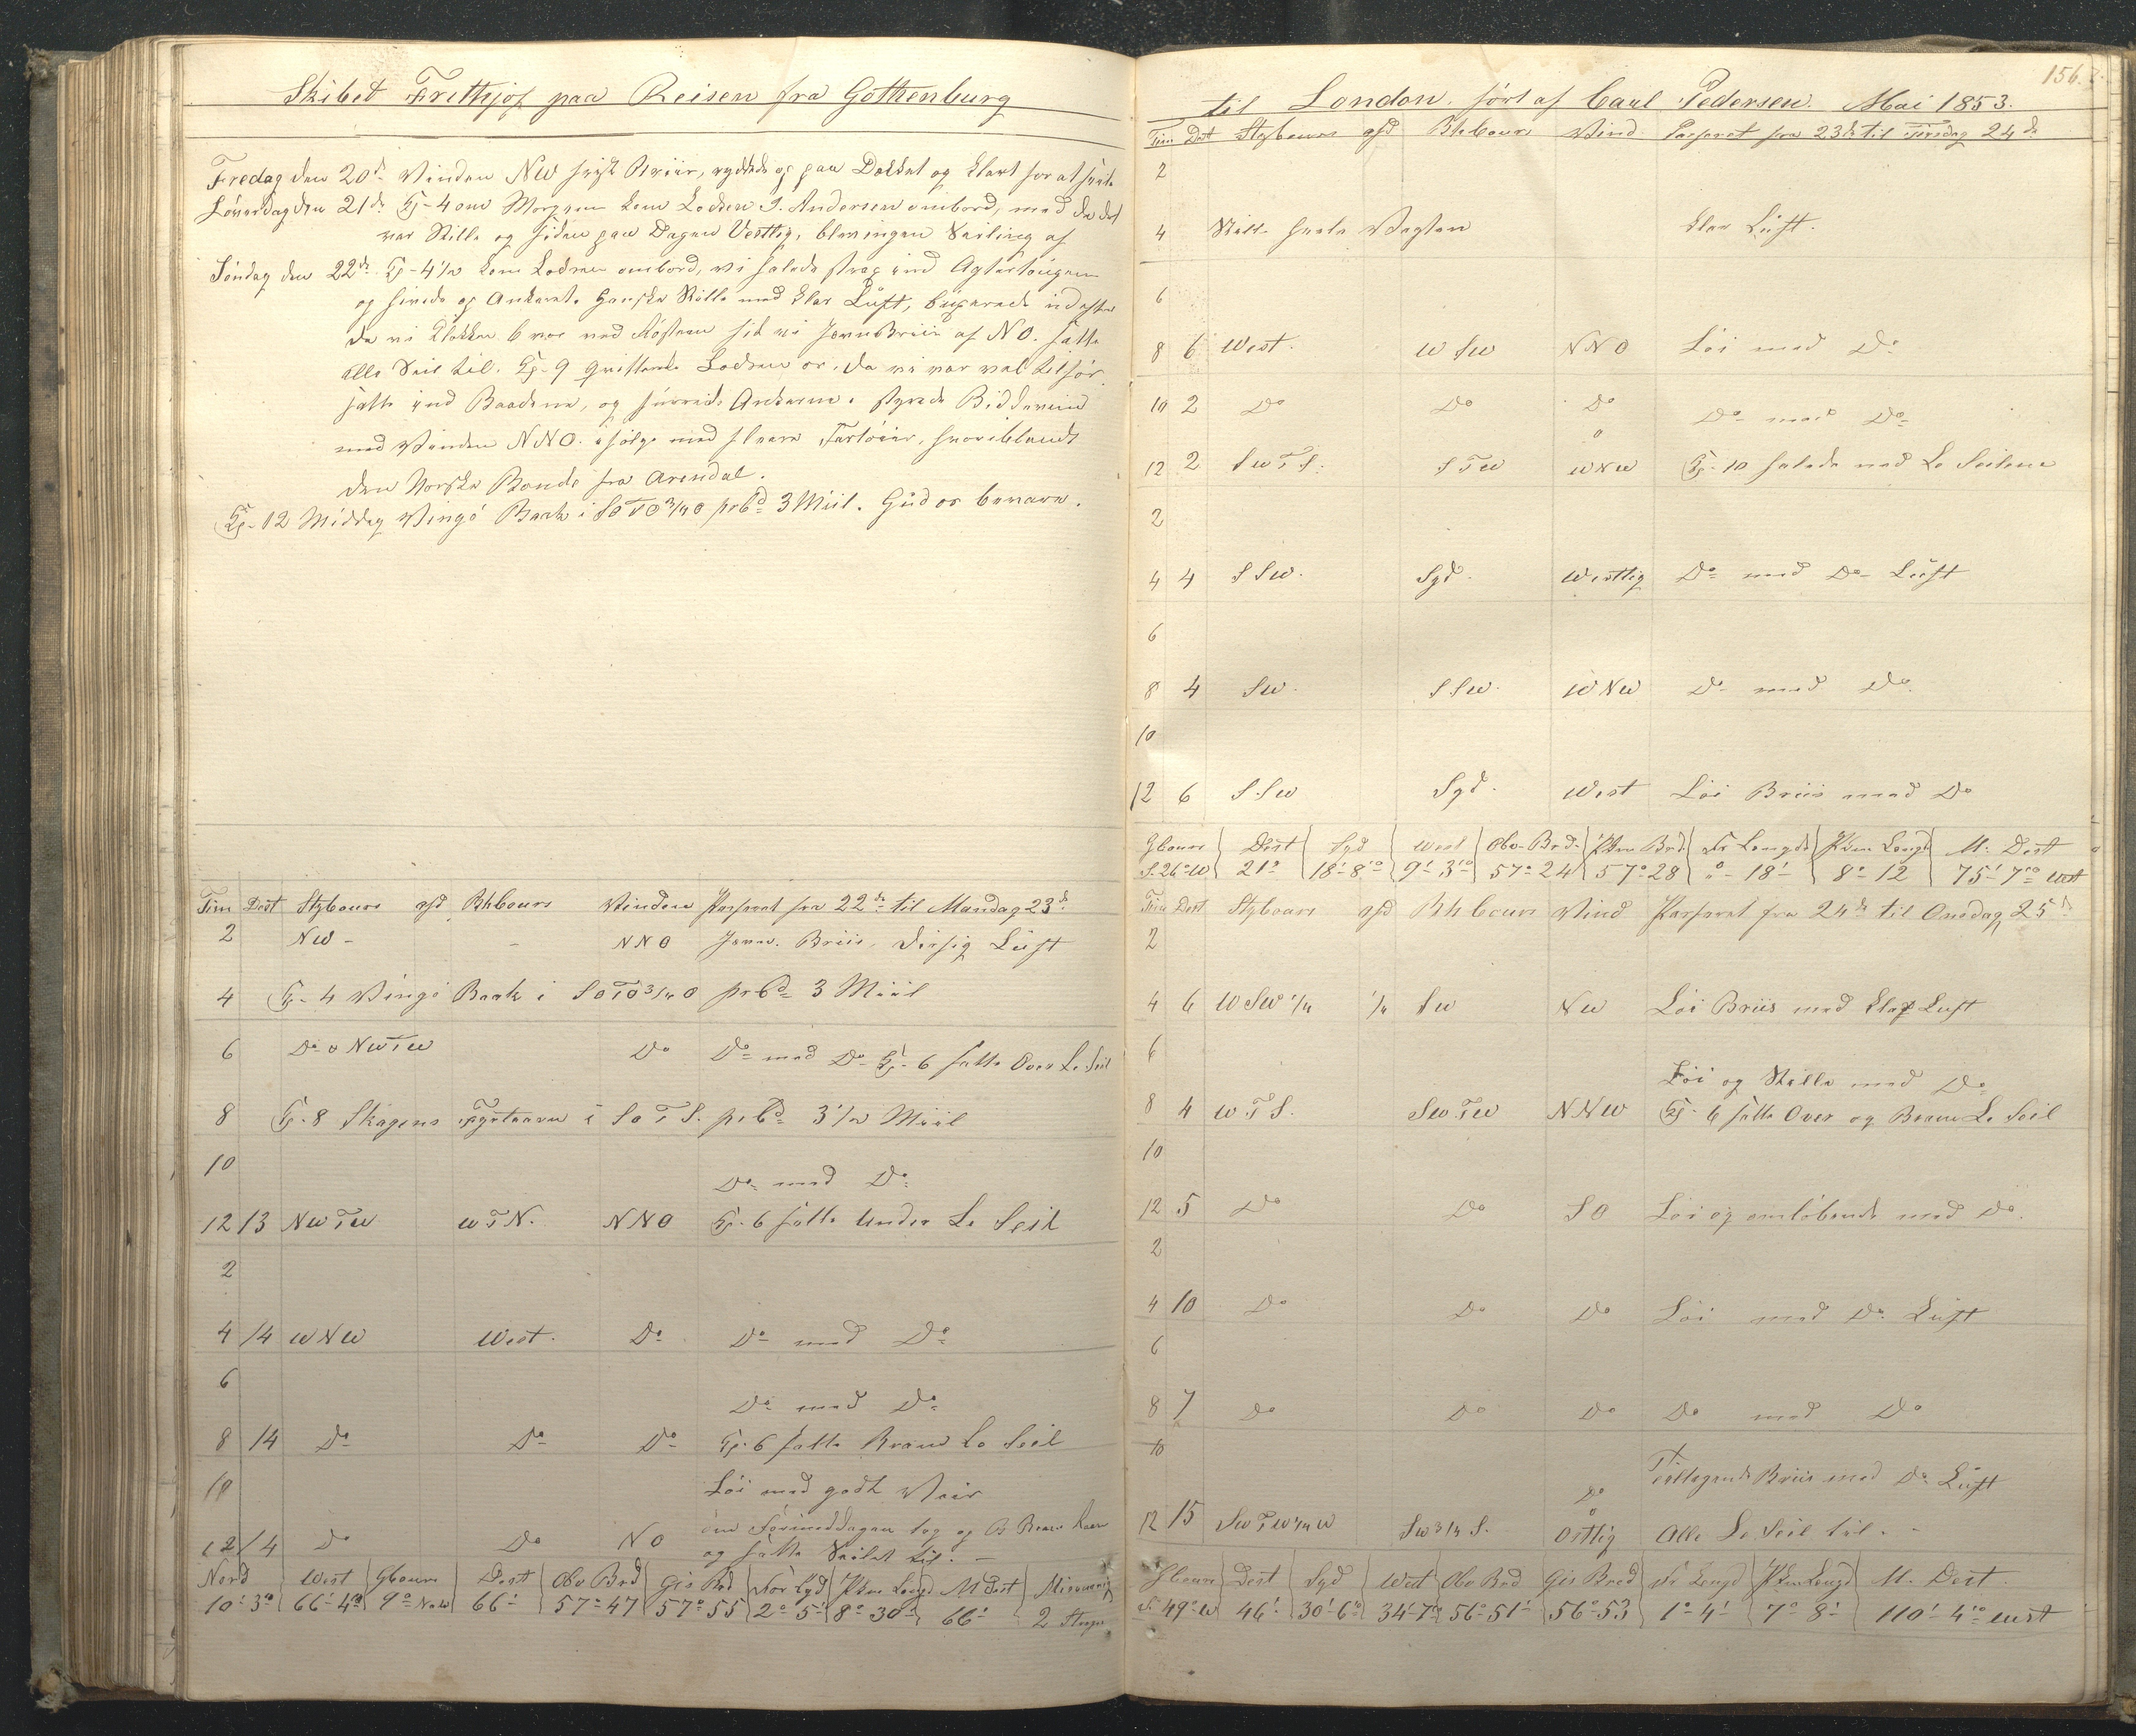 Skibet Frithjof paa Reisen fra Gothenburg
Fredag den 20de Vinden NW frisk Briis, ryddede op paa Dækket og klart for at
Löverdag den 21de Kl-4 om Morgenen kom Lodsen J. Andersen ombord, med da det
var Stille og siden paa Dagen Vestlig, blev ingen Seiling af
Söndag den 22de Kl-4½ kom Lodsen ombord, vi halede strax ind Agtertougene
og hivede op Ankeret. Ganske Stille med klar Luft, buxerede ud efter
da vi Klokken 6 var ved fik vi Jevn Briis af NO. satte
alle Seil til. Kl-9 qvitterede Lodsen os, da vi var vel tilsös.
satte ind Baadene, og surrede Ankerne. styrede Bidevind
med Vinden NNO. i fölge med flere Fartöier, hvoriblandt
den Norske Bonde fra Arendal.
Kl-12 Middag Vingö Baak i SOTO¾O prCo 3 Miil. Gud os bevare.
Tim Dist Stybours afd Bhbours Vinden Passeret fra 22de til Mandag 23de
2 NW - - NNO Jevn. Briis, Disig Luft
4 Kl-4 Vingö Baak i SOTO¾O prCo 3 Miil
6 Do o NWTW Do Do med Do Kl-6 satte Over Le Seil
8 Kl-8 Skagens Fyrtaarn i SOTS. prCo 3½ Miil
10 Do med Do
12 13 NWTW WTN. NNO Kl-6 satte Under Le Seil
2
4 14 WNW West. Do Do med Do
6 Do med Do
8 14 Do Do Do Kl-6 satte Bram Le Seil
10 Löi med godt Veir
12 14 Do Do NO om Formiddagen tog op
og satte Seilet til. -
Nord West Gbours Dist Obs Brd Gis Brd For Lgd Pkm Lengd M Dist Misviisning
10'3 66'4 9o NoW 66' 57o47 57o55 2o5' 8o30 66' 2 Streger
156.
til London. fört af Carl Pedersen. Mai 1853.
Tim Dist Stybours afd Bhbours Vind Passeret fra 23de til Tirsdag 24de
2
4 Stille heele Vagten klar Luft.
6
8 6 West. WSW NNO Löi med Do
10 2 Do Do Do Do med Do
12 2 SWTS. STW WNW Kl-10 halede ned Le Seilene
2
4 4 SSW. Syd. Westlig Do med Do Luft
6
8 4 SW. SSW. WNW Do med Do
10
12 6 SSW Syd. West Löi Briis med Do
Gbours Dist Syd West Obs-Brd. Pkm Brd Fr Lengde Pkm Lengd M. Dist
S.26oW 21' 18'8 9'3 57o24 57o28 o-18' 8o12 75'7 West
Tim Dist Stybours afd Bhbours Vind Passeret fra 24de til Onsdag 25de
2
4 6 WSW¼ ¼ SW NW Löi Briis med klar Luft
6
Löi og Stille med Do
8 4 WTS. SWTW NNW Kl-6 satte Over og Bram Le Seil
10
12 5 Do Do SO Löi og omlöbende med Do.
2
4 10 Do Do Do Löi med Do Luft
6
8 7 Do Do Do Do med Do
10 Tiltagende Briis med Do Luft
Do
12 15 SWTW¼W SW¾S. Östlig Alle Le Seil til. -
Gbours Dist Syd West Obs Brd Gis Bred Fr Lengd Pkm Lengd M. Dist.
S49oW 46' 30'6 34'7 56o51' 56o53 1o4' 7o8' 110'4 West